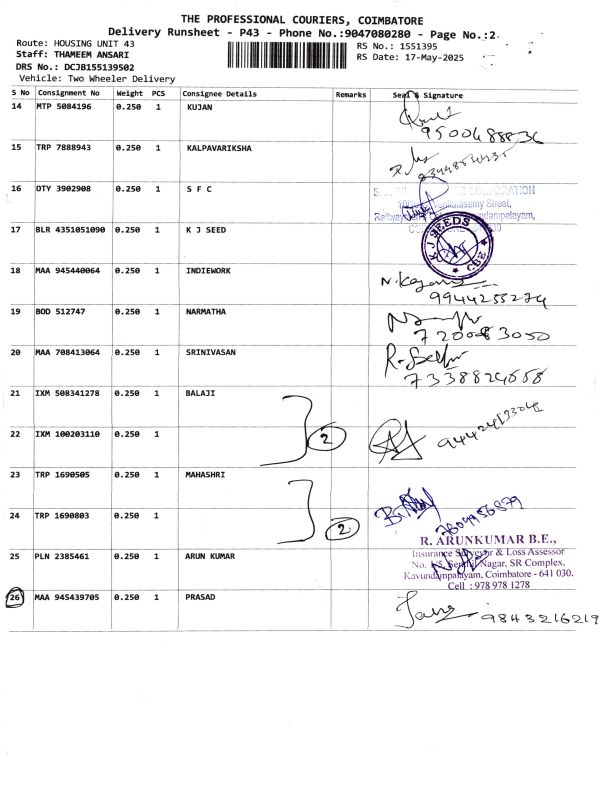 THE PROFESSIONAL COURIERS, COIMBATORE
Delivery Runsheet - P43 - Phone No.:9047080280 - Page No.:2
Route: HOUSING UNIT 43
RS No.: 1551395
Staff: THAMEEM ANSARI
RS Date: 17-May-2025
DRS No.: DCJB155139502
Vehicle: Two Wheeler Delivery
S No Consignment No Weight PCS Consignee Details Remarks Seal & Signature
14 MTP 5084196 0.250 1 KUJAN
15 TRP 7888943 0.250 1 KALPAVARIKSHA
16 OTY 3902908 0.250 1 S F C
CORPORATION
Street,
17 BLR 4351051090 0.250 1 K J SEED
K J SEEDS
CBE
18 MAA 945440064 0.250 1 INDIEWORK
9944255274
19 BOD 512747 0.250 1 NARMATHA
20 MAA 708413064 0.250 1 SRINIVASAN
21 IXM 508341278 0.250 1 BALAJI
22 IXM 100203110 0.250 1
2
23 TRP 1690505 0.250 1 MAHASHRI
24 TRP 1690803 0.250 1
2
7604956879
25 PLN 2385461 0.250 1 ARUN KUMAR
R. ARUNKUMAR B.E.,
Insurance Surveyor & Loss Assessor
Nagar, SR Complex,
Kavundampalayam, Coimbatore - 641 030.
Cell : 978 978 1278
26 MAA 945439705 0.250 1 PRASAD
9843216219